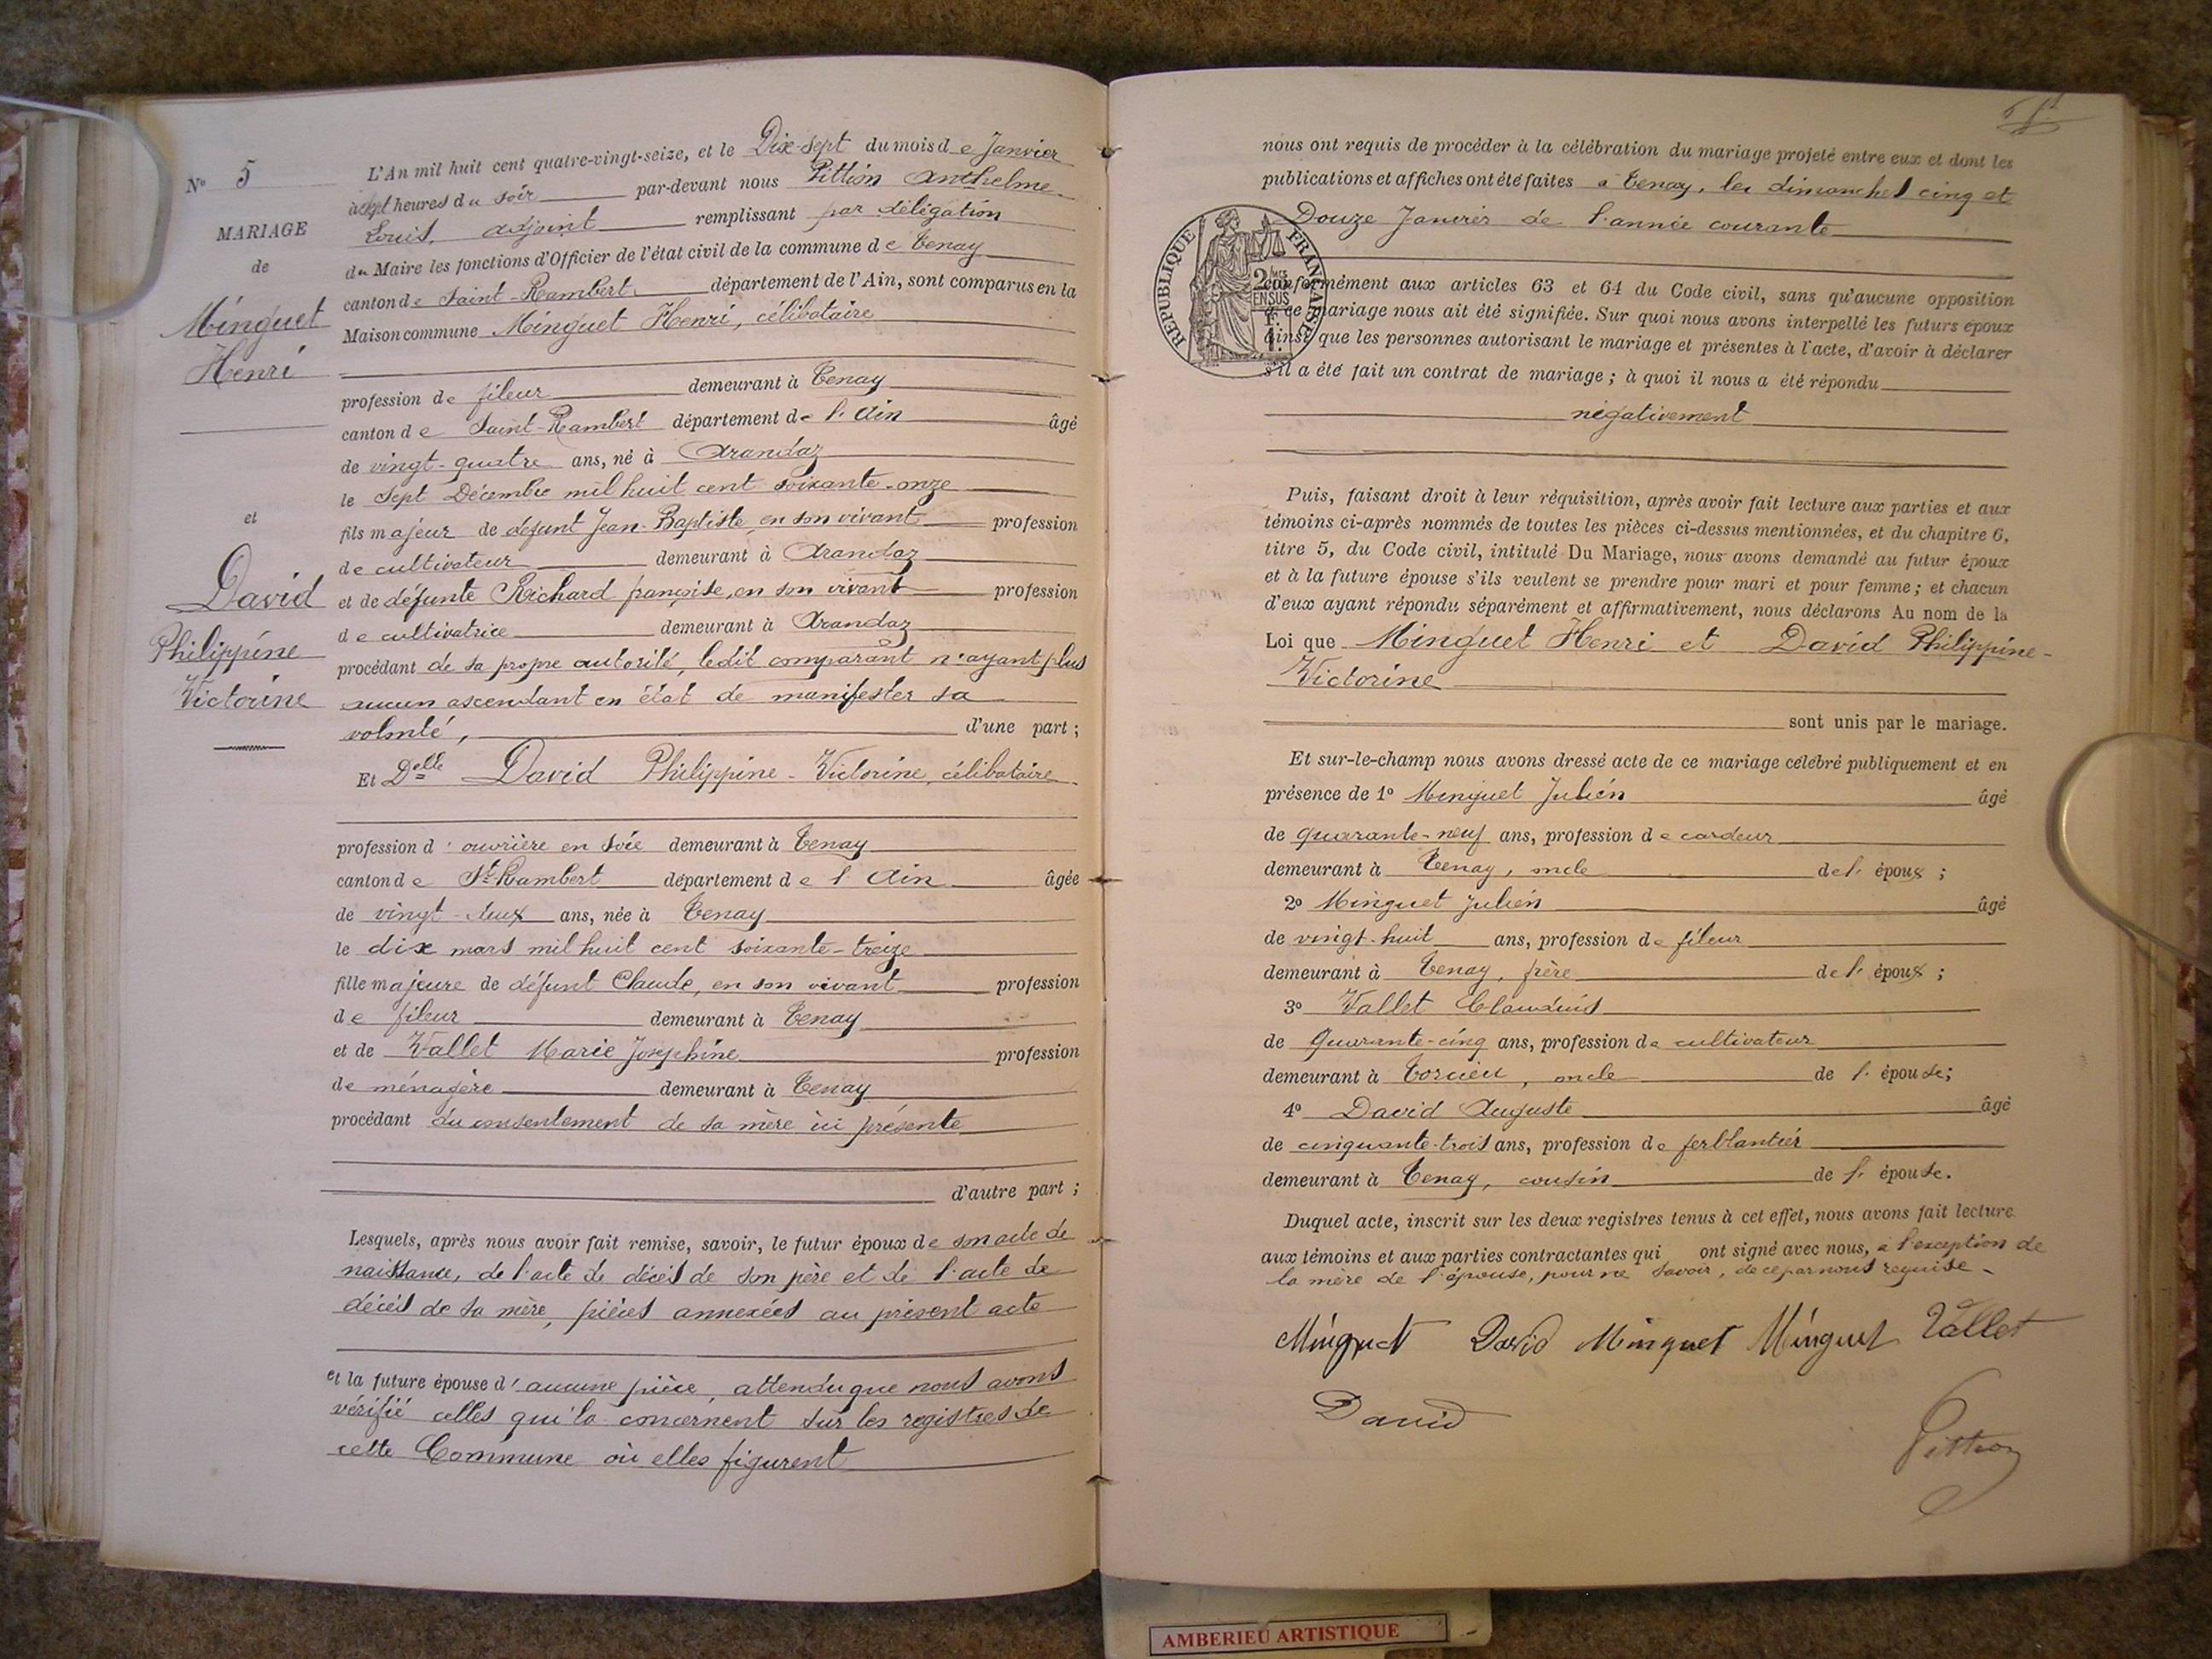 N° 5
MARIAGE
de
Minguet
Henri
et
David
Philippine
Victorine
L'An mil huit cent quatre-vingt-seize, et le Dix-Sept du mois de Janvier
à sept heures du soir par-devant nous Pittion Anthelme
Louis, adjoint remplissant par délégation
du Maire les fonctions d'Officier de l'état civil de la commune de Tenay
canton de Saint-Rambert département de l'Ain, sont comparus en la
Maison commune Minguet Henri, célibataire
profession de fileur demeurant à Tenay
canton de Saint-Rambert département de l'Ain âgé
de vingt-quatre ans, né à Arandaz
le sept Décembre mil huit cent soixante-onze
fils majeur de défunt Jean-Baptiste, en son vivant profession
de cultivateur demeurant à Arandaz
et de défunte Richard françoise, en son vivant profession
de cultivatrice demeurant à Arandaz
procédant de sa propre autorité, ledit comparant n'ayant plus
aucun ascendant en état de manifester sa
volonté, d'une part ;
Et Delle David Philippine-Victorine, célibataire
profession d'ouvrière en soie demeurant à Tenay
canton de St-Rambert département de l'Ain âgée
de vingt-deux ans, née à Tenay
le dix mars mil huit cent soixante-treize
fille majeure de défunt Claude, en son vivant profession
de fileur demeurant à Tenay
et de Vallet Marie Josephine profession
de ménagère demeurant à Tenay
procédant du consentement de sa mère ici présente
d'autre part ;
Lesquels, après nous avoir fait remise, savoir, le futur époux de son acte de
naissance, de l'acte de décès de son père et de l'acte de
décès de sa mère, pièces annexées au présent acte
et la future épouse d'aucune pièce, attendu que nous avons
vérifié celles qui la concernent sur les registres de
cette Commune où elles figurent
nous ont requis de procéder à la célébration du mariage projeté entre eux et dont les
publications et affiches ont été faites à Tenay, les dimanches cinq et
Douze Janvier de l'année courante
RÉPUBLIQUE FRANÇAISE
conformément aux articles 63 et 64 du Code civil, sans qu'aucune opposition
à ce mariage nous ait été signifiée. Sur quoi nous avons interpellé les futurs époux
ainsi que les personnes autorisant le mariage et présentes à l'acte, d'avoir à déclarer
s'il a été fait un contrat de mariage ; à quoi il nous a été répondu
négativement
Puis, faisant droit à leur réquisition, après avoir fait lecture aux parties et aux
témoins ci-après nommés de toutes les pièces ci-dessus mentionnées, et du chapitre 6,
titre 5, du Code civil, intitulé Du Mariage, nous avons demandé au futur époux
et à la future épouse s'ils veulent se prendre pour mari et pour femme ; et chacun
d'eux ayant répondu séparément et affirmativement, nous déclarons Au nom de la
Loi que Minguet Henri et David Philippine-
Victorine
sont unis par le mariage.
Et sur-le-champ nous avons dressé acte de ce mariage célébré publiquement et en
présence de 1° Minguet Julien âgé
de quarante-neuf ans, profession de cardeur
demeurant à Tenay, oncle de l'époux ;
2° Minguet Julien âgé
de vingt-huit ans, profession de fileur
demeurant à Tenay, frère de l'époux ;
3° Vallet Claudius
de Quarante-cinq ans, profession de cultivateur
demeurant à Torcieu, oncle de l'épouse ;
4° David Auguste âgé
de cinquante-trois ans, profession de ferblantier
demeurant à Tenay, cousin de l'épouse.
Duquel acte, inscrit sur les deux registres tenus à cet effet, nous avons fait lecture
aux témoins et aux parties contractantes qui ont signé avec nous, à l'exception de
la mère de l'épouse, pour ne savoir, de ce par nous requise
Minguet David Minguet Minguet Vallet
David
Pittion
AMBERIEU ARTISTIQUE